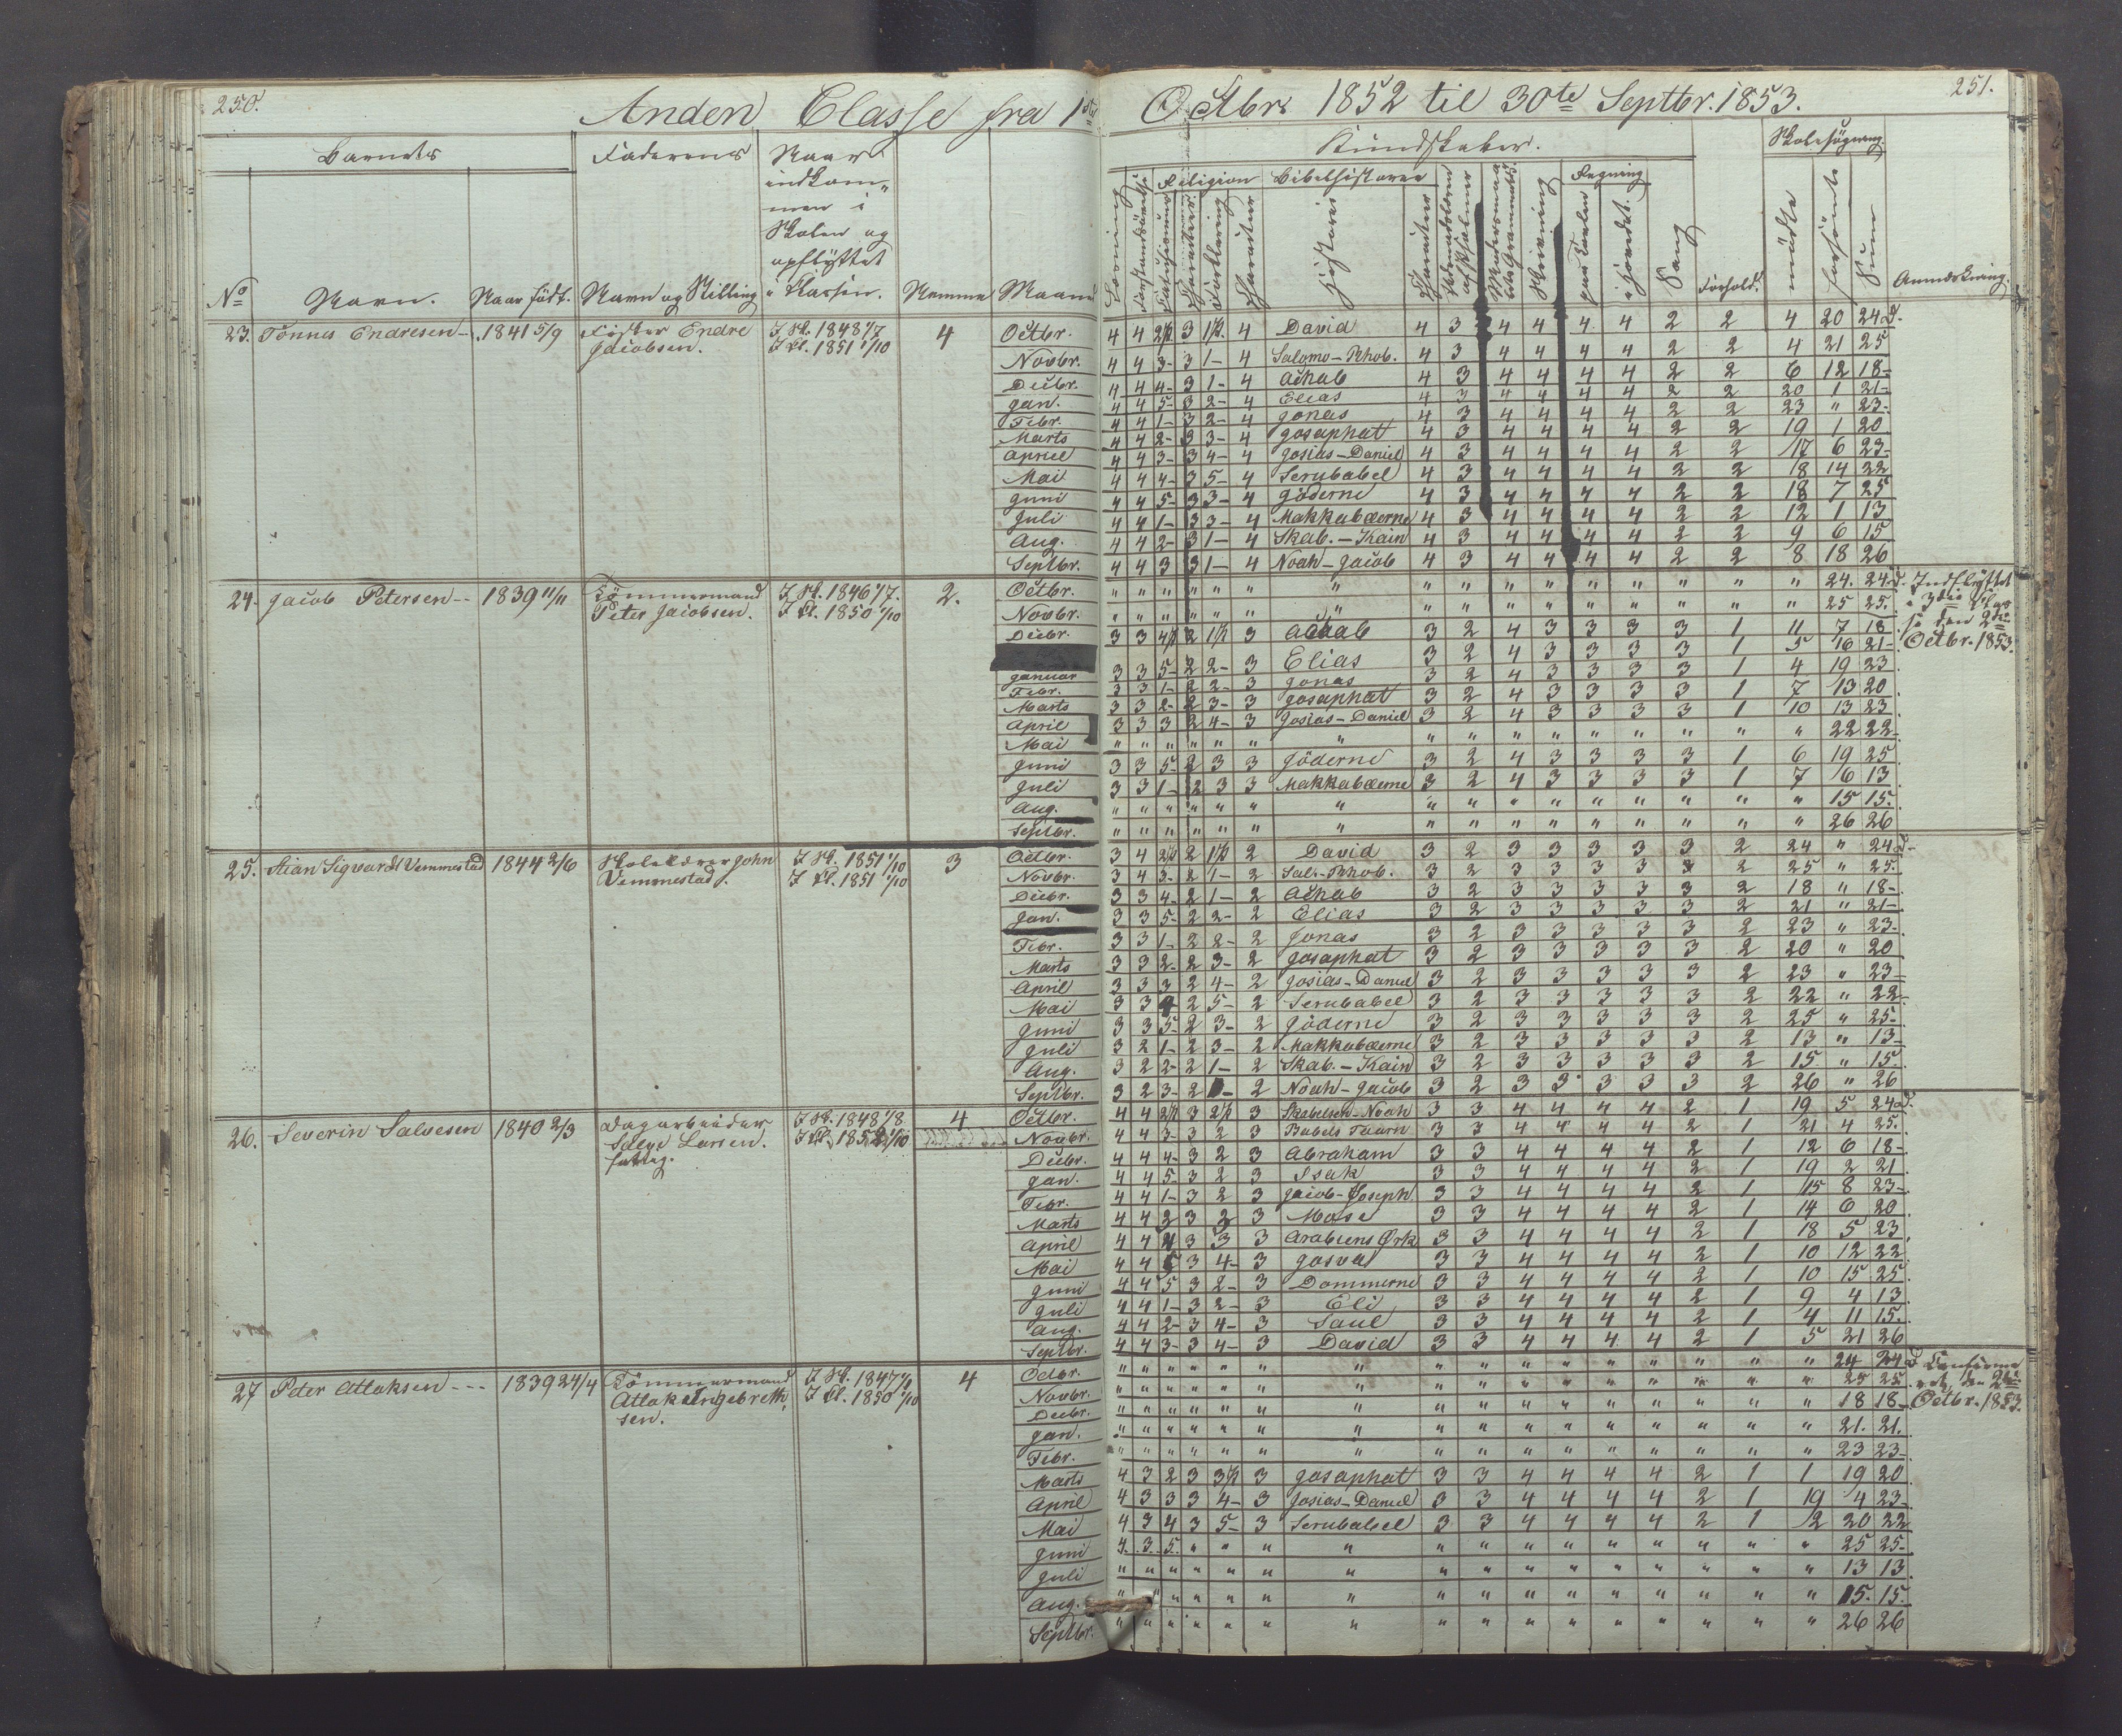 250.
Anden Classe fra 1ste
Octbr. 1852 til 30te Septbr. 1853.
251.
Barnets
Faderens
Naar indkom-
men i
Skolen og
opflyttet
i Klassen.
No
Navn.
Naar født.
Navn og Stilling
Nemme
Maaned
Kundskaber.
Skolesøgning.
Religion
Bibelhistorie
Regning
Historie
Skrivning
Sang
Forhold.
mødte
forsømte
Sum
Anmærkning.
23. Tönnes Endresen 1841 5/9 Fisker Endre Jacobsen. I Sk. 1848 1/7 I Cl. 1851 1/10 4
Octbr. 4 4 2½ 3 1½ 4 David 4 3 4 4 4 4 2 2 4 20 24 d.
Novbr. 4 4 3- 3 1- 4 Salomo-Rhob. 4 3 4 4 4 4 2 2 4 21 25
Decbr. 4 4 4- 3 1- 4 Achab 4 3 4 4 4 4 2 2 6 12 18-
Jan. 4 4 5- 3 2- 4 Elias 4 3 4 4 4 4 2 2 20 1 21-
Febr. 4 4 1- 3 2- 4 Jonas 4 3 4 4 4 4 2 2 23 " 23-
Marts 4 4 2- 3 3- 4 Josaphat 4 3 4 4 4 4 2 2 19 1 20
April 4 4 3- 3 4- 4 Josias-Daniel 4 3 4 4 4 4 2 2 17 6 23-
Mai 4 4 4- 3 5- 4 Serubabel 4 3 4 4 4 4 2 2 18 14 22
Juni 4 4 5- 3 3- 4 Jöderne 4 3 4 4 4 4 2 2 18 7 25
Juli 4 4 1- 3 3- 4 Makkabæerne 4 3 4 4 4 4 2 2 12 1 13
Aug. 4 4 2- 3 1- 4 Skab.-Kain 4 3 4 4 4 4 2 2 9 6 15
Septbr. 4 4 3 3 1- 4 Noah-Jacob 4 3 4 4 4 4 2 2 8 18 26
24. Jacob Petersen 1839 11/11 Tömmermand Peter Jacobsen. I Sk. 1846 1/7. I Cl. 1850 1/10 2.
Octbr. " " " " " " " " " " " " " " " " 24. 24. d. Indflyttet
Novbr. " " " " " " " " " " " " " " " " 25 25. i 3die Clas
Decbr. 3 3 4½ 2 1½ 3 Achab 3 2 4 3 3 3 3 1 11 7 18 se den 2den
Januar 3 3 5- 2 2- 3 Elias 3 2 4 3 3 3 3 1 5 16 21- Octbr. 1853.
Febr. 3 3 1- 2 2- 3 Jonas 3 2 4 3 3 3 3 1 4 19 23
Marts 3 3 2- 2 3- 3 Josaphat 3 2 4 3 3 3 3 1 7 13 20
April 3 3 3 2 4- 3 Josias-Daniel 3 2 4 3 3 3 3 1 10 13 23
Mai " " " " " " " " " " " " " " " " 22 22
Juni 3 3 5- 2 3 3 Jöderne 3 2 4 3 3 3 3 1 6 19 25
Juli 3 3 1- 2 3 3 Makkabæerne 3 2 4 3 3 3 3 1 7 6 13
Aug. " " " " " " " " " " " " " " " " 15 15.
Septbr. " " " " " " " " " " " " " " " " 26 26
25. Stian Sigvardt Vemmestad 1844 2/6 Skolelærer John Vemmestad. I Sk. 1851 1/10 I Cl. 1851 1/10 3
Octbr. 3 4 2½ 2 1½ 2 David 3 2 3 3 3 3 3 2 24 " 24 d.
Novbr. 3 4 3- 2 1- 2 Sal.-Rhob. 3 2 3 3 3 3 3 2 25 " 25.
Decbr. 3 3 4- 2 1- 2 Achab 3 2 3 3 3 3 3 2 18 " 18-
Jan. 3 3 5- 2 2- 2 Elias 3 2 3 3 3 3 3 2 21 " 21-
Febr. 3 3 1- 2 2- 2 Jonas 3 2 3 3 3 3 3 2 23 " 23-
Marts 3 3 2- 2 3- 2 Josaphat 3 2 3 3 3 3 3 2 20 " 20
April 3 3 3 2 4- 2 Josias-Daniel 3 2 3 3 3 3 3 2 23 " 23
Mai 3 3 4 2 5- 2 Serubabel 3 2 3 3 3 3 3 2 22 " 22
Juni 3 3 5- 2 3- 2 Jöderne 3 2 3 3 3 3 3 2 25 " 25-
Juli 3 2 1- 2 3- 2 Makkabæerne 3 2 3 3 3 3 3 2 13 " 13-
Aug. 3 2 2- 2 1- 2 Skab.-Kain 3 2 3 3 3 3 3 2 15 " 15.
Septbr. 3 2 3- 2 1- 2 Noah-Jacob 3 2 3 3 3 3 3 2 26 " 26
26. Severin Salvesen 1840 2/3 Dagarbeider Salve Larsen. fattig. I Sk. 1848 1/8 I Cl. 1852 1/10 4
Octbr. 4 4 2½ 3 2½ 3 Skabelsen-Noah 3 3 4 4 4 4 2 1 19 5 24 d.
Novbr. 4 4 3- 3 2 3 Babels Taarn 3 3 4 4 4 4 2 1 21 4 25.
Decbr. 4 4 4- 3 2 3 Abraham 3 3 4 4 4 4 2 1 12 6 18-
Jan. 4 4 5- 3 2 3 Isak 3 3 4 4 4 4 2 1 19 2 21
Febr. 4 4 1- 3 2 3 Jacob-Joseph 3 3 4 4 4 4 2 1 15 8 23-
Marts 4 4 2 3 3 3 Mose 3 3 4 4 4 4 2 1 14 6 20
April 4 4 4 3 3 3 Arabiens Ørk 3 3 4 4 4 4 2 1 18 5 23
Mai 4 4 5 3 4- 3 Josva 3 3 4 4 4 4 2 1 10 12 22
Juni 4 4 5 3 2- 3 Dommerne 3 3 4 4 4 4 2 1 10 15 25
Juli 4 4 1- 3 2- 3 Eli 3 3 4 4 4 4 2 1 9 4 13
Aug. 4 4 2- 3 4- 3 Saul 3 3 4 4 4 4 2 1 4 11 15.
Septbr. 4 4 3- 3 4- 3 David 3 3 4 4 4 4 2 1 5 21 26
27 Peter Attaksen 1839 24/4 Tömmermand Attak Ingebreth, sen. I Sk. 1847 I Cl. 1850 1/10 4
Octbr. " " " " " " " " " " " " " " " " 24 24 d. Confirme
Novbr. " " " " " " " " " " " " " " " " 25 25. ret den 2den
Decbr. " " " " " " " " " " " " " " " " 18 18- Octbr. 1853.
Jan. " " " " " " " " " " " " " " " " 21. 21.
Febr. " " " " " " " " " " " " " " " " 23 23-
Marts 4 3 2 3 3½ 3 Josaphat 3 3 4 4 4 4 2 1 1 19 20
April 4 3 3 3 4- 3 Josias-Daniel 3 3 4 4 4 4 2 1 19 4 23-
Mai 4 3 4 3 5- 3 Serubabel 3 3 4 4 4 4 2 1 2 20 22
Juni 4. 3. 5. " " " " " " " " " " " " " 25 25-
Juli " " " " " " " " " " " " " " " " 13 13
Aug. " " " " " " " " " " " " " " " 15. 15.
Septbr. " " " " " " " " " " " " " " " " 26 26